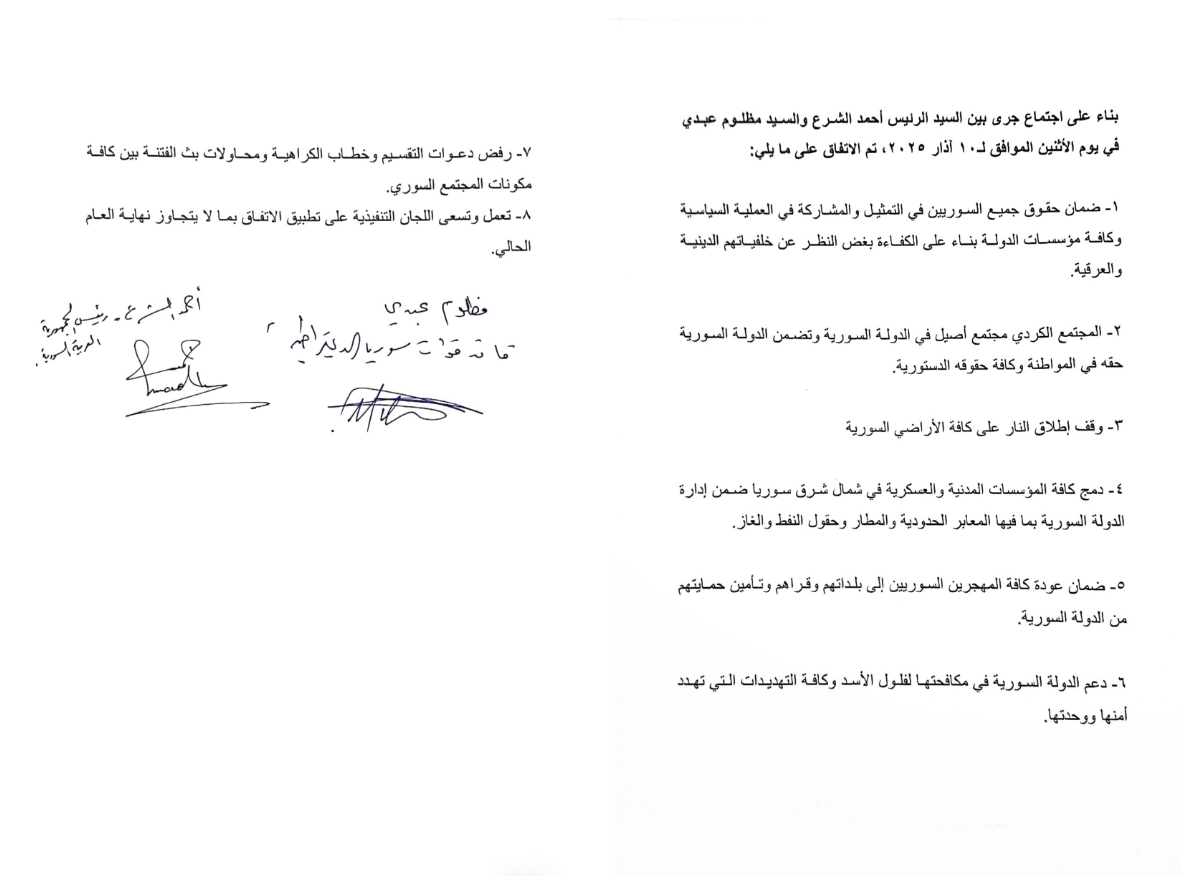 بناء على اجتماع جرى بين السيد الرئيس أحمد الشرع والسيد مظلوم عبدي
في يوم الأثنين الموافق لـ١٠ آذار ٢٠٢٥، تم الاتفاق على ما يلي:
١- ضمان حقوق جميع السوريين في التمثيل والمشاركة في العملية السياسية
وكافة مؤسسات الدولة بناء على الكفاءة بغض النظر عن خلفياتهم الدينية
والعرقية.
٢- المجتمع الكردي مجتمع أصيل في الدولة السورية وتضمن الدولة السورية
حقه في المواطنة وكافة حقوقه الدستورية.
٣- وقف إطلاق النار على كافة الأراضي السورية
٤- دمج كافة المؤسسات المدنية والعسكرية في شمال شرق سوريا ضمن إدارة
الدولة السورية بما فيها المعابر الحدودية والمطار وحقول النفط والغاز.
٥- ضمان عودة كافة المهجرين السوريين إلى بلداتهم وقراهم وتأمين حمايتهم
من الدولة السورية.
٦- دعم الدولة السورية في مكافحتها لفلول الأسد وكافة التهديدات التي تهدد
أمنها ووحدتها.
٧- رفض دعوات التقسيم وخطاب الكراهية ومحاولات بث الفتنة بين كافة
مكونات المجتمع السوري.
٨- تعمل وتسعى اللجان التنفيذية على تطبيق الاتفاق بما لا يتجاوز نهاية العام
الحالي.
مظلوم عبدي
قائد قوات سوريا الديمقراطية
أحمد الشرع - رئيس الجمهورية
العربية السورية.